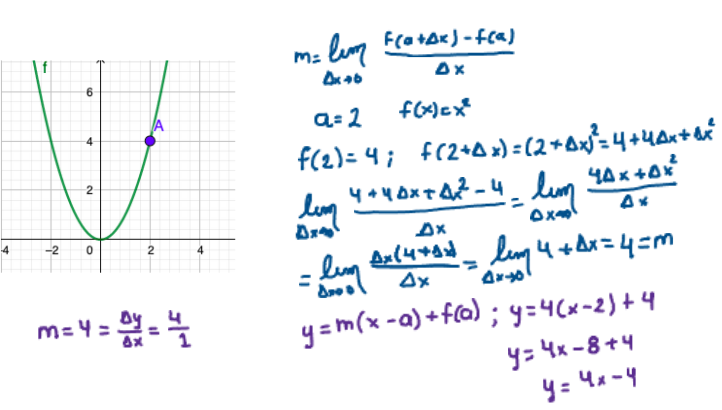 f
A
6
4
2
-4 −2 0 2 4
m = lim f(a+Δx) - f(a) / Δx
Δx→0
a = 2 f(x) = x²
f(2) = 4 ; f(2+Δx) = (2+Δx)² = 4+4Δx+Δx²
lim Δx→0 4+4Δx+Δx² - 4 / Δx = lim Δx→0 4Δx+Δx² / Δx
= lim Δx→0 Δx(4+Δx) / Δx = lim Δx→0 4+Δx = 4 = m
m = 4 = Δy/Δx = 4/1
y = m(x-a) + f(a) ; y = 4(x-2) + 4
y = 4x - 8 + 4
y = 4x - 4